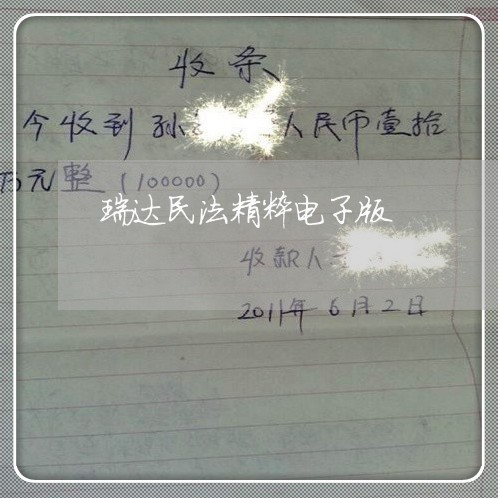 收条
今收到孙 人民币壹拾
万元整(100000)
瑞达民法精粹电子版
收款人
2011年6月2日